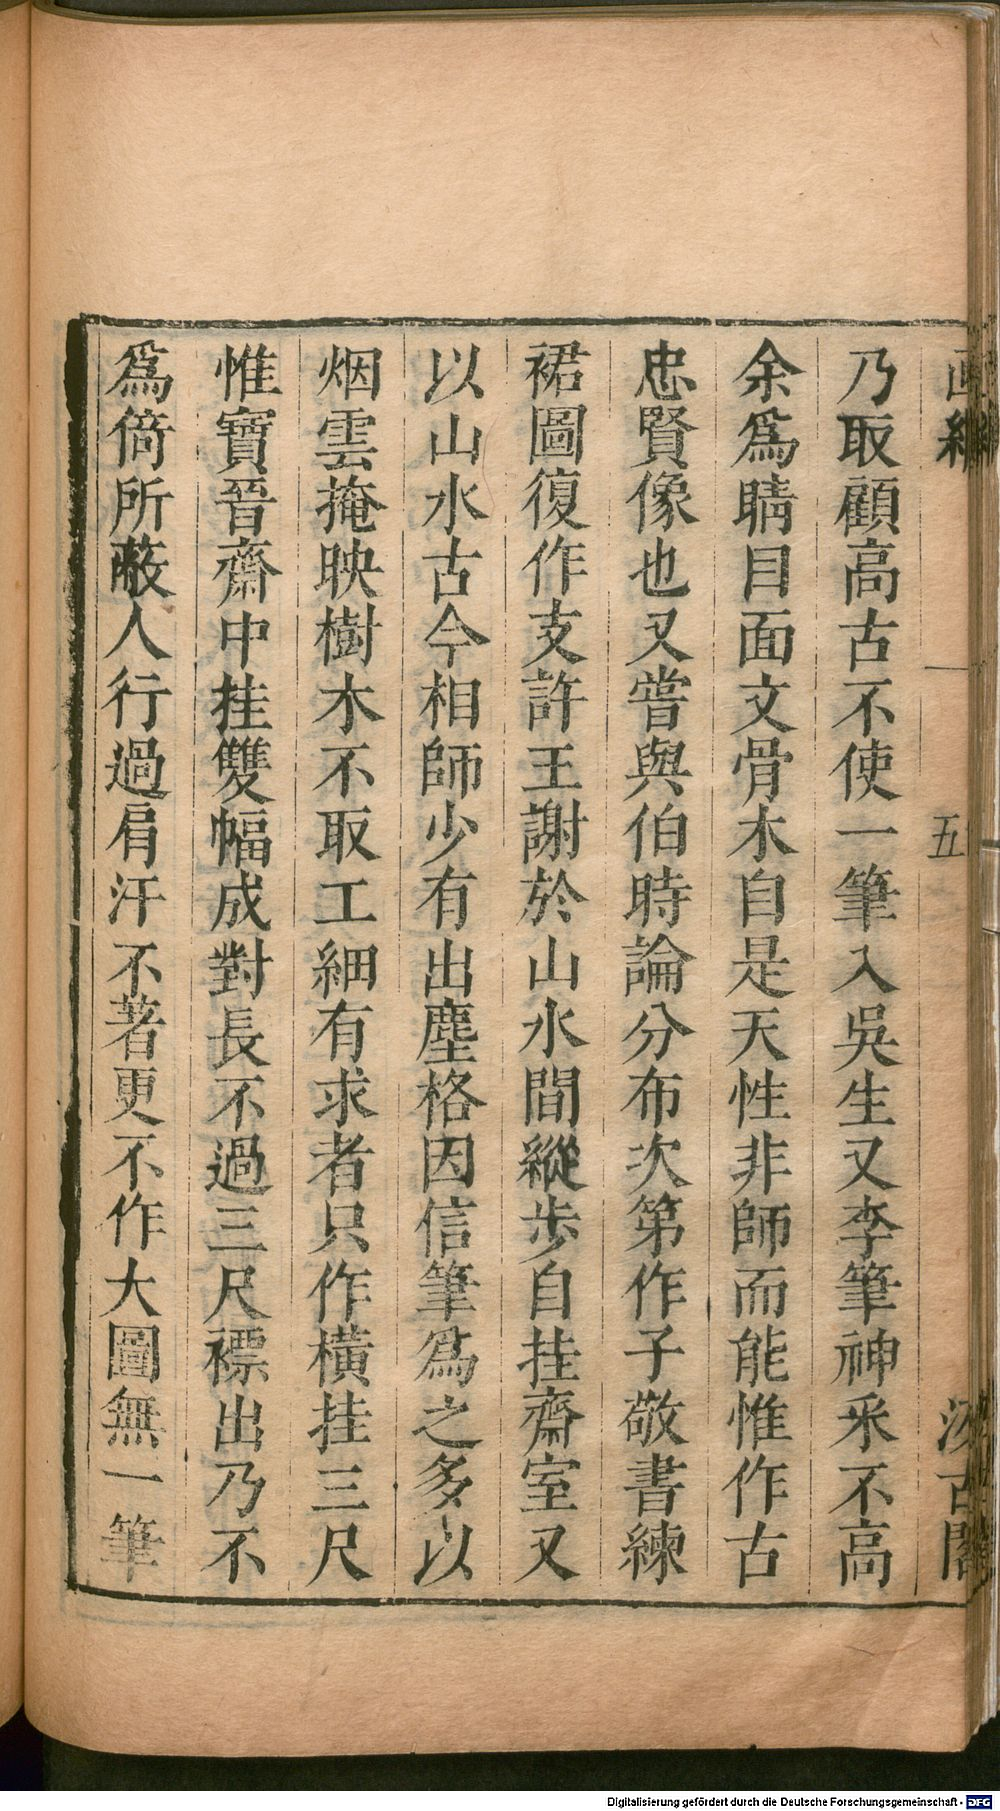 乃取顧高古不使一筆入吳生又李筆神采不高
余爲睛目面文骨木自是天性非師而能惟作古
忠賢像也又嘗與伯時論分布次第作子敬書練
裙圖復作支許王謝於山水間縱步自挂齋室又
以山水古今相師少有出塵格因信筆爲之多以
烟雲掩映樹木不取工細有求者只作橫挂三尺
惟寶晉齋中挂雙幅成對長不過三尺褾出乃不
爲倚所蔽人行過肩汗不著更不作大圖無一筆
五
Digitalisierung gefördert durch die Deutsche Forschungsgemeinschaft - DFG